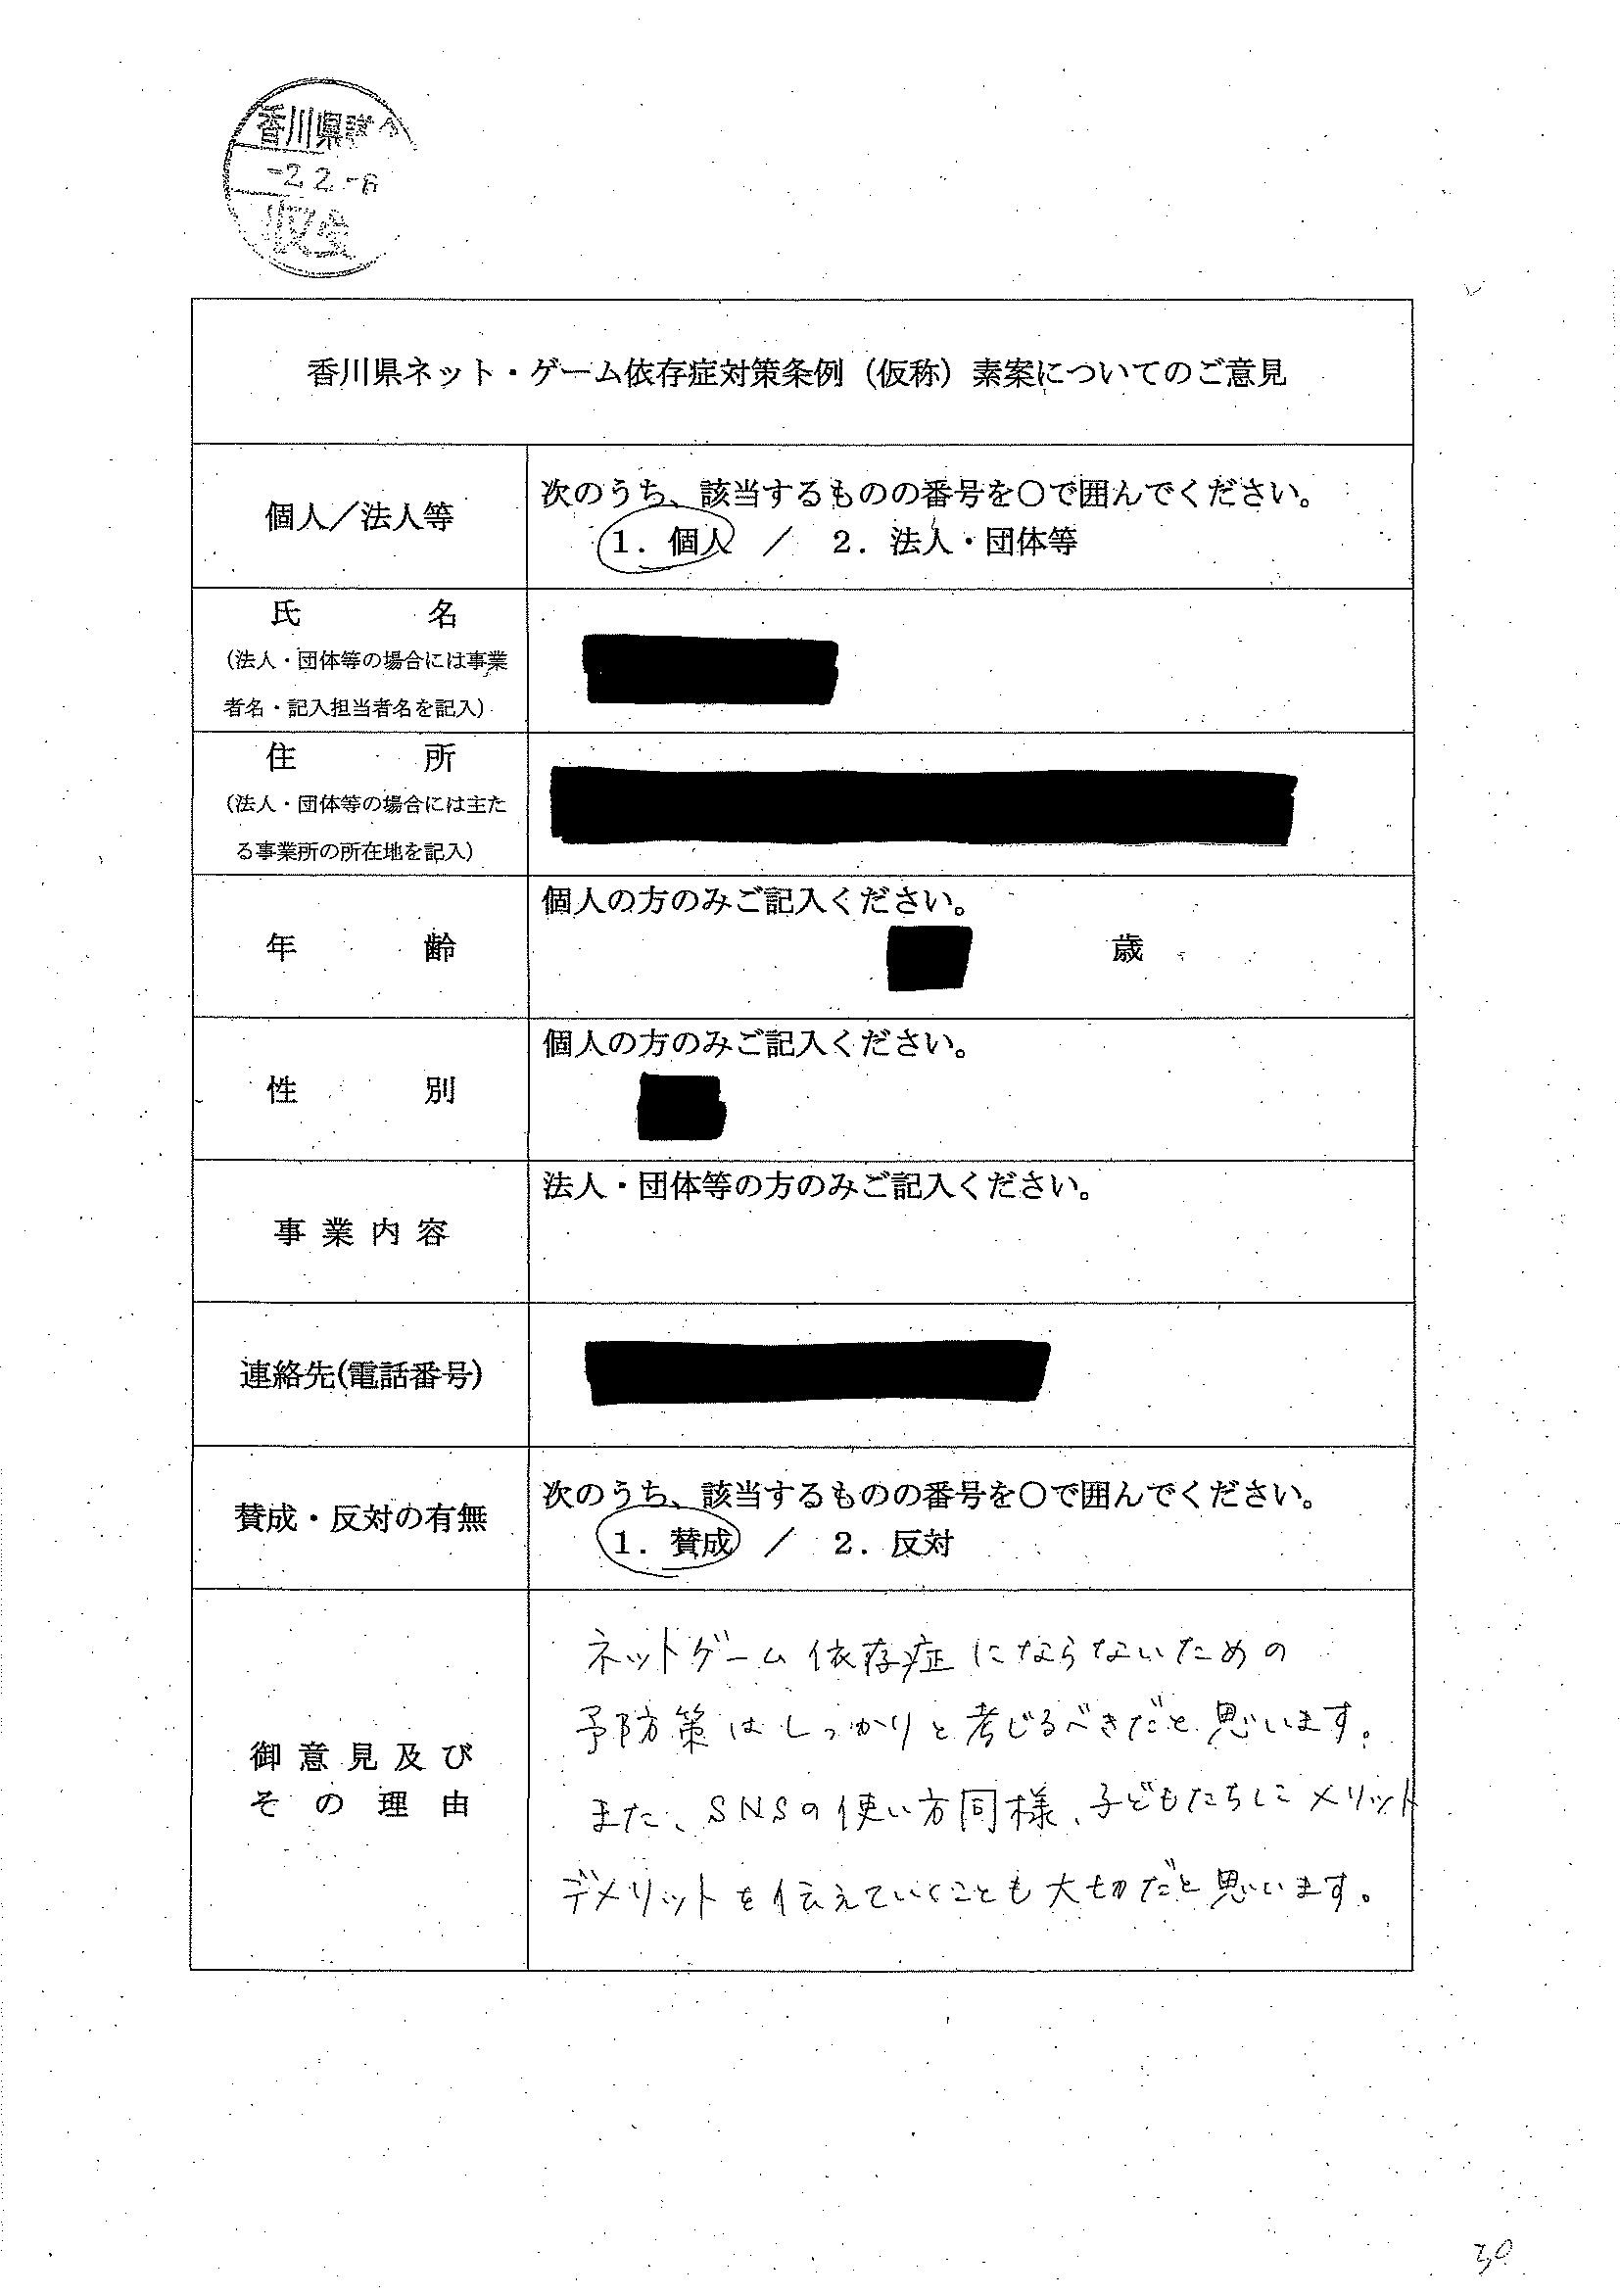 香川県議会
-2.2.-6
収受
香川県ネット・ゲーム依存症対策条例（仮称）素案についてのご意見
個人／法人等
次のうち、該当するものの番号を〇で囲んでください。
1．個人　／　2．法人・団体等
氏　名
（法人・団体等の場合には事業
者名・記入担当者名を記入）
住　所
（法人・団体等の場合には主た
る事業所の所在地を記入）
年　齢
個人の方のみご記入ください。
歳
性　別
個人の方のみご記入ください。
事業内容
法人・団体等の方のみご記入ください。
連絡先(電話番号)
賛成・反対の有無
次のうち、該当するものの番号を〇で囲んでください。
1．賛成　／　2．反対
御意見及び
その理由
ネットゲーム依存症にならないための
予防策はしっかりと考じるべきだと思います。
また、SNSの使い方同様、子どもたちにメリット
デメリットを伝えていくことも大切だと思います。
30